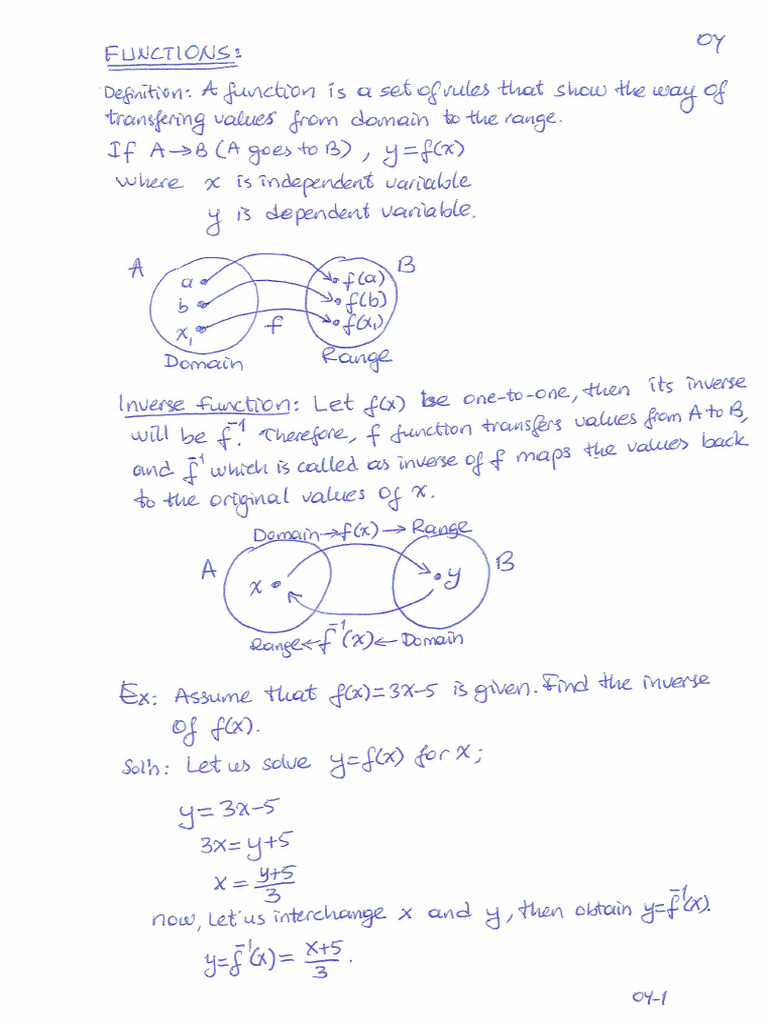 OY
FUNCTIONS:
Definition: A function is a set of rules that show the way of
transfering values from domain to the range.
If A→B (A goes to B), y=f(x)
where x is independent variable
y is dependent variable.
A
B
a
f(a)
b
f(b)
x₁
f
f(x₁)
Domain
Range
Inverse function: Let f(x) be one-to-one, then its inverse
will be f⁻¹. Therefore, f function transfers values from A to B,
and f⁻¹ which is called as inverse of f maps the values back
to the original values of x.
Domain→f(x)→Range
A
B
x
y
Range←f⁻¹(x)←Domain
Ex: Assume that f(x)=3x-5 is given. Find the inverse
of f(x).
Sol'n: Let us solve y=f(x) for x;
y=3x-5
3x=y+5
x=(y+5)/3
now, let us interchange x and y, then obtain y=f⁻¹(x).
y=f⁻¹(x)=(x+5)/3.
OY-1